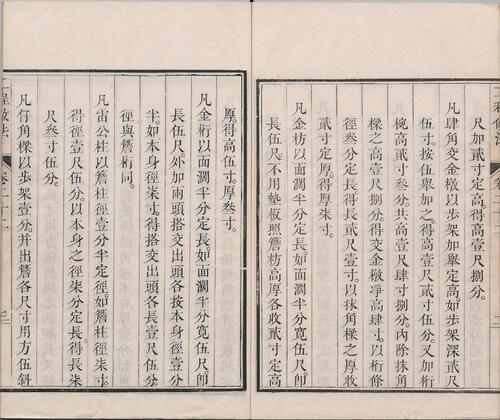 尺加貳寸定高。得高壹尺。
凡肆角交金橔以步架加舉定高。如步架深貳尺
伍寸。按伍舉加之。得高壹尺貳寸伍分。又加桁
椀高貳寸叁分。共高壹尺肆寸捌分。內除抹角
樑之高壹尺捌分。得交金橔凈高肆寸。以桁條
徑叁分定長。得長貳尺壹寸。以抹角樑之厚收
貳寸定厚。得厚柒寸。
凡金枋以面濶半分定長。如面濶半分寬伍尺。卽
長伍尺。不用墊板。照簷枋高厚各收貳寸定高
厚。得高伍寸。厚叁寸。
凡金桁以面濶半分定長。如面濶半分寬伍尺。卽
長伍尺。外加兩頭搭交出頭各按本身徑壹分
半。如本身徑柒寸。得搭交出頭各長壹尺伍分。
徑與簷桁同。
凡雷公柱以簷柱徑壹分半定徑。如簷柱徑柒寸。
得徑壹尺伍分。以本身之徑柒分定長。得長柒
尺叁寸伍分。
凡仔角樑以步架壹分。并出簷各尺寸用方伍斜
工程做法 卷二十二 三